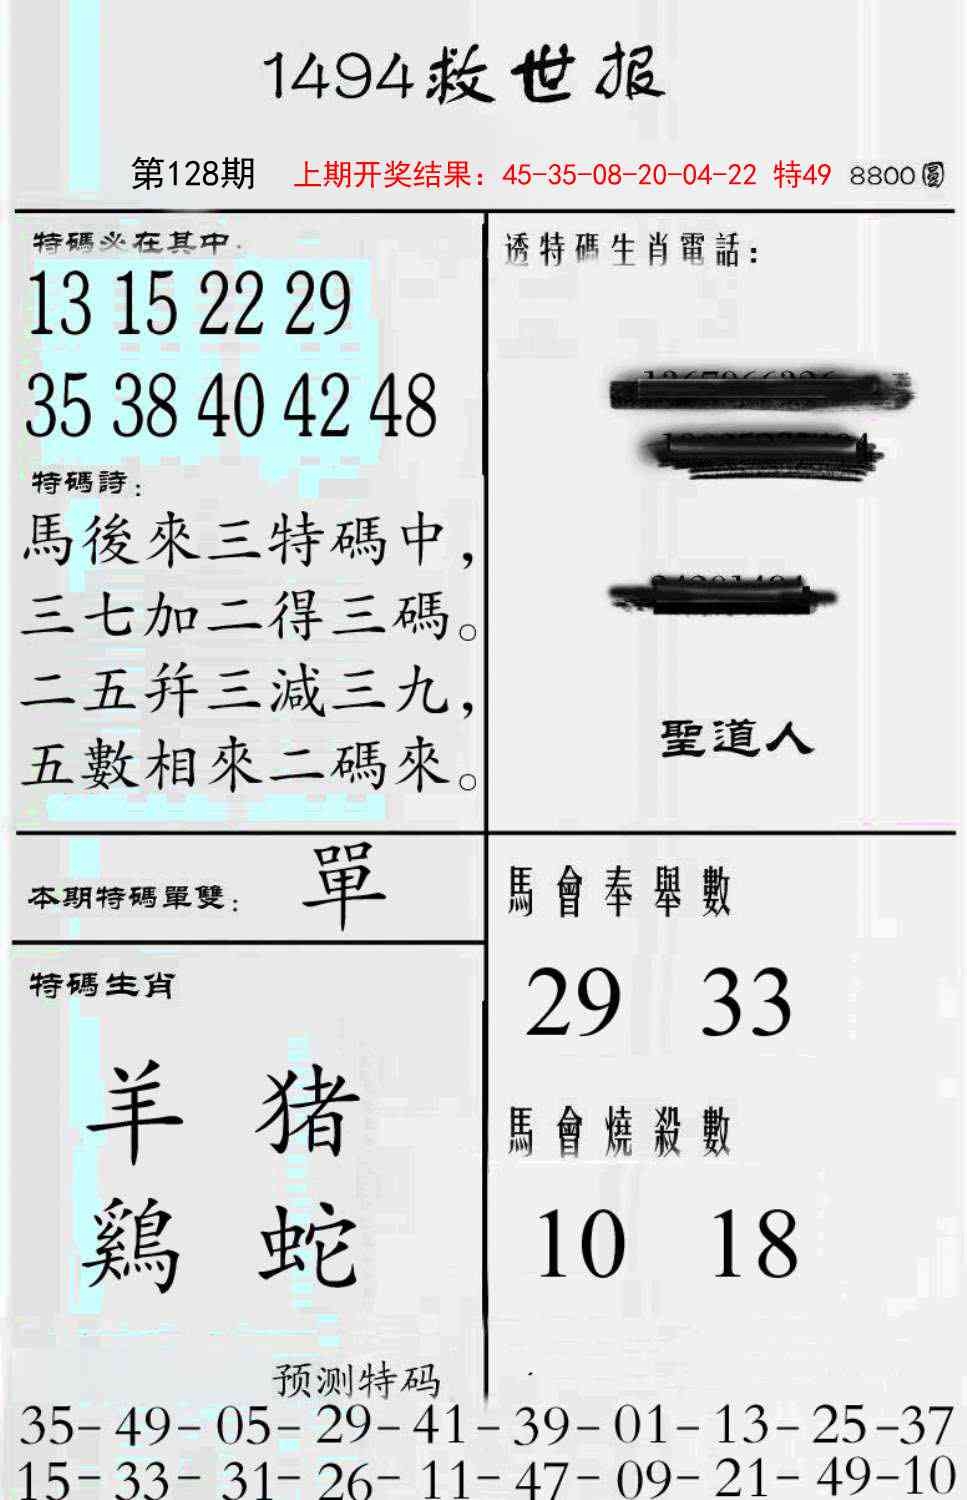 1494救世报
第128期 上期开奖结果：45-35-08-20-04-22 特49 8800圓
特碼必在其中:
13 15 22 29
35 38 40 42 48
特碼詩:
馬後來三特碼中，
三七加二得三碼。
二五并三減三九，
五數相來二碼來。
透特碼生肖電話:
聖道人
本期特碼單雙: 單
特碼生肖
羊 猪
鷄 蛇
馬會奉舉數
29 33
馬會燒殺數
10 18
预测特码
35-49-05-29-41-39-01-13-25-37
15-33-31-26-11-47-09-21-49-10